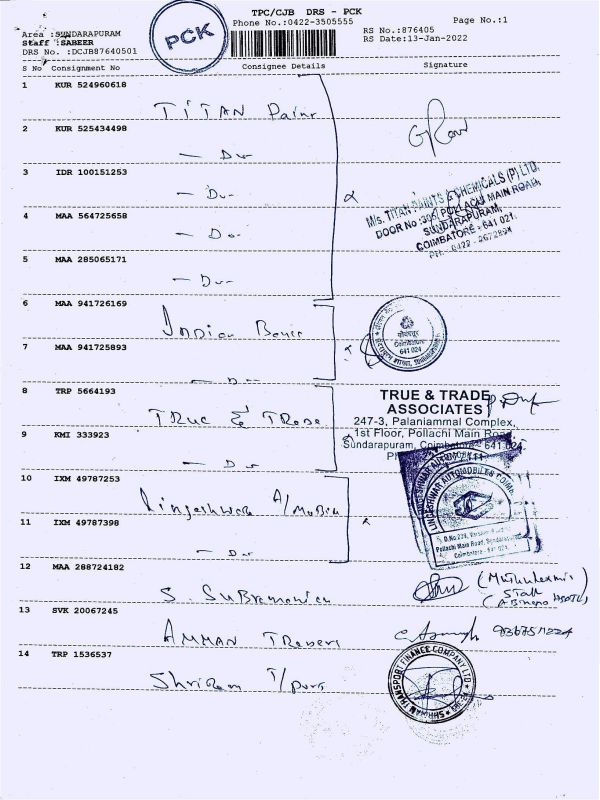 TPC/CJB DRS - PCK
Phone No.:0422-3505555
Page No.:1
PCK
Area :SUNDARAPURAM
RS No.:876405
Staff :SABEER
RS Date:13-Jan-2022
DRS No. :DCJB87640501
S No Consignment No Consignee Details Signature
1 KUR 524960618
TITAN Paint
2 KUR 525434498
3 IDR 100151253
M/s. TITAN PAINTS & CHEMICALS (P) LTD.
DOOR No :305, POLLACHI MAIN ROAD,
SUNDARAPURAM,
COIMBATORE - 641 021.
4 MAA 564725658
5 MAA 285065171
6 MAA 941726169
Indian
Coimbatore
641 024
7 MAA 941725893
8 TRP 5664193
True & Trade
TRUE & TRADE
ASSOCIATES
247-3, Palaniammal Complex,
1st Floor, Pollachi Main Road
Sundarapuram, Coimbatore - 641 024
9 KMI 333923
10 IXM 49787253
Lingeshwar A/Mobile
LINGESHWAR AUTOMOBILES
Pollachi Main Road, Sundarapuram
Coimbatore - 641 021
11 IXM 49787398
12 MAA 288724182
S. Subramanian
13 SVK 20067245
AMMAN Traders
14 TRP 1536537
Shriram T/port
SHRIRAM TRANSPORT FINANCE COMPANY LTD